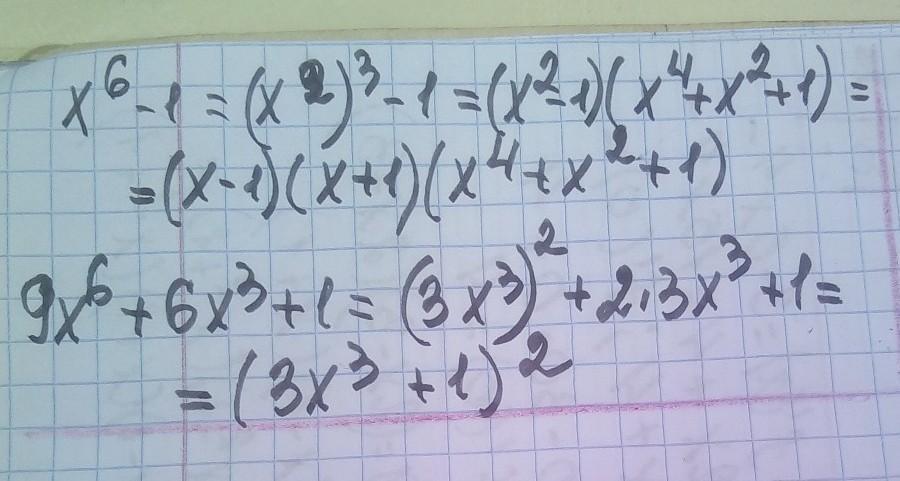 x⁶-1 = (x²)³-1 = (x²-1)(x⁴+x²+1) =
= (x-1)(x+1)(x⁴+x²+1)
9x⁶+6x³+1 = (3x³)²+2·3x³+1 =
= (3x³+1)²